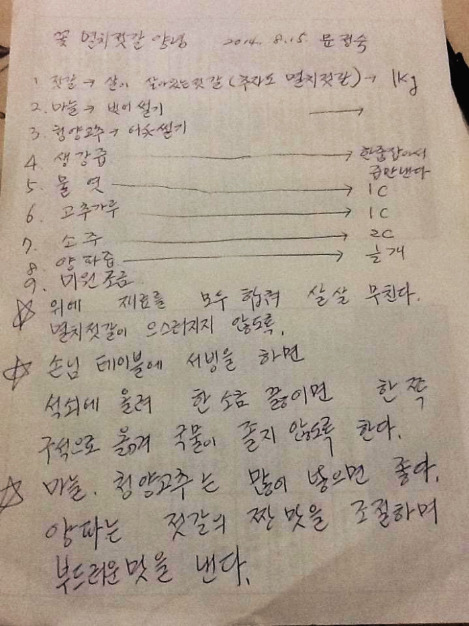 꽃 멸치젓갈 양념 2014. 8.15 문정숙
1. 젓갈 → 살이 살아있는젓갈 (추자도 멸치젓갈) → 1kg
2. 마늘 → 썰기 →
3. 청양고추 → 어슷썰기
4. 생강즙 → 한줌잡아서 즙만낸다
5. 물엿 → 1C
6. 고추가루 → 1C
7. 소주 → 2C
8. 양파즙 → 개
9. 미원 조금
☆ 위에 재료를 모두 합쳐 살살 무친다.
멸치젓갈이 으스러지지 않도록.
☆ 손님 테이블에 서빙을 하면
석쇠에 올려 한소큼 끓이면 한 쪽
구석으로 옮겨 국물이 졸지 않도록 한다.
☆ 마늘. 청양고추는 많이 넣으면 좋다.
양파는 젓갈의 짠맛을 조절하며
부드러운맛을 낸다.